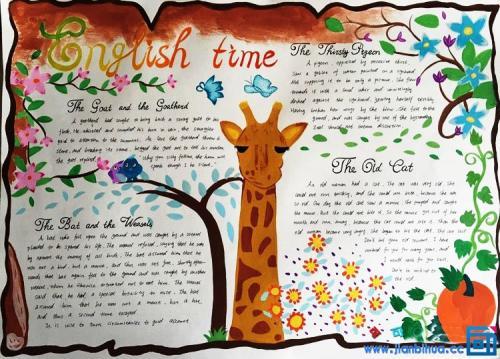 English time
The Thirsty Pigeon
A pigeon, oppressed by excessive thirst,
saw a goblet of water painted on a signboard.
Not supposing it to be only a picture, she flew
towards it with a loud whir and unwittingly
dashed against the signboard, jarring herself terribly.
Having broken her wings by the blow, she fell to the
ground, and was caught by one of the bystanders.
Zeal should not outrun discretion.
The Goat and the Goatherd
A goatherd had sought to bring back a stray goat to his
flock. He whistled and sounded his horn in vain; the straggler
paid no attention to the summons. At last the goatherd threw a
stone, and breaking its horn, begged the goat not to tell his master.
the goat replied, "Why you silly fellow, the horn will
speak though I be silent."
The Old Cat
An old woman had a cat. The cat was very old; she
could not run quickly, and she could not bite, because she was
so old. One day the old cat saw a mouse; she jumped and caught
the mouse. But she could not bite it; so the mouse got out of her
mouth and ran away, because the cat could not bite it. Then the
old woman became very angry. She began to hit the cat. The cat said,
Don't hit your old servant. I have
worked for you for many years, and I
would work for you still,
Don't be unkind to
the old
The Bat and the Weasels
A bat who fell upon the ground and was caught by a weasel
pleaded to be spared his life. The weasel refused, saying that he was
by nature the enemy of all birds. The bat assured him that he
was not a bird, but a mouse, and thus was set free. Shortly after-
wards the bat again fell to the ground and was caught by another
weasel, whom he likewise entreated not to eat him. The weasel
said that he had a special hostility to mice. The bat
assured him that he was not a mouse, but a bat,
and thus a second time escaped.
It is wise to turn circumstances to good account.
www.jianbihua.cc